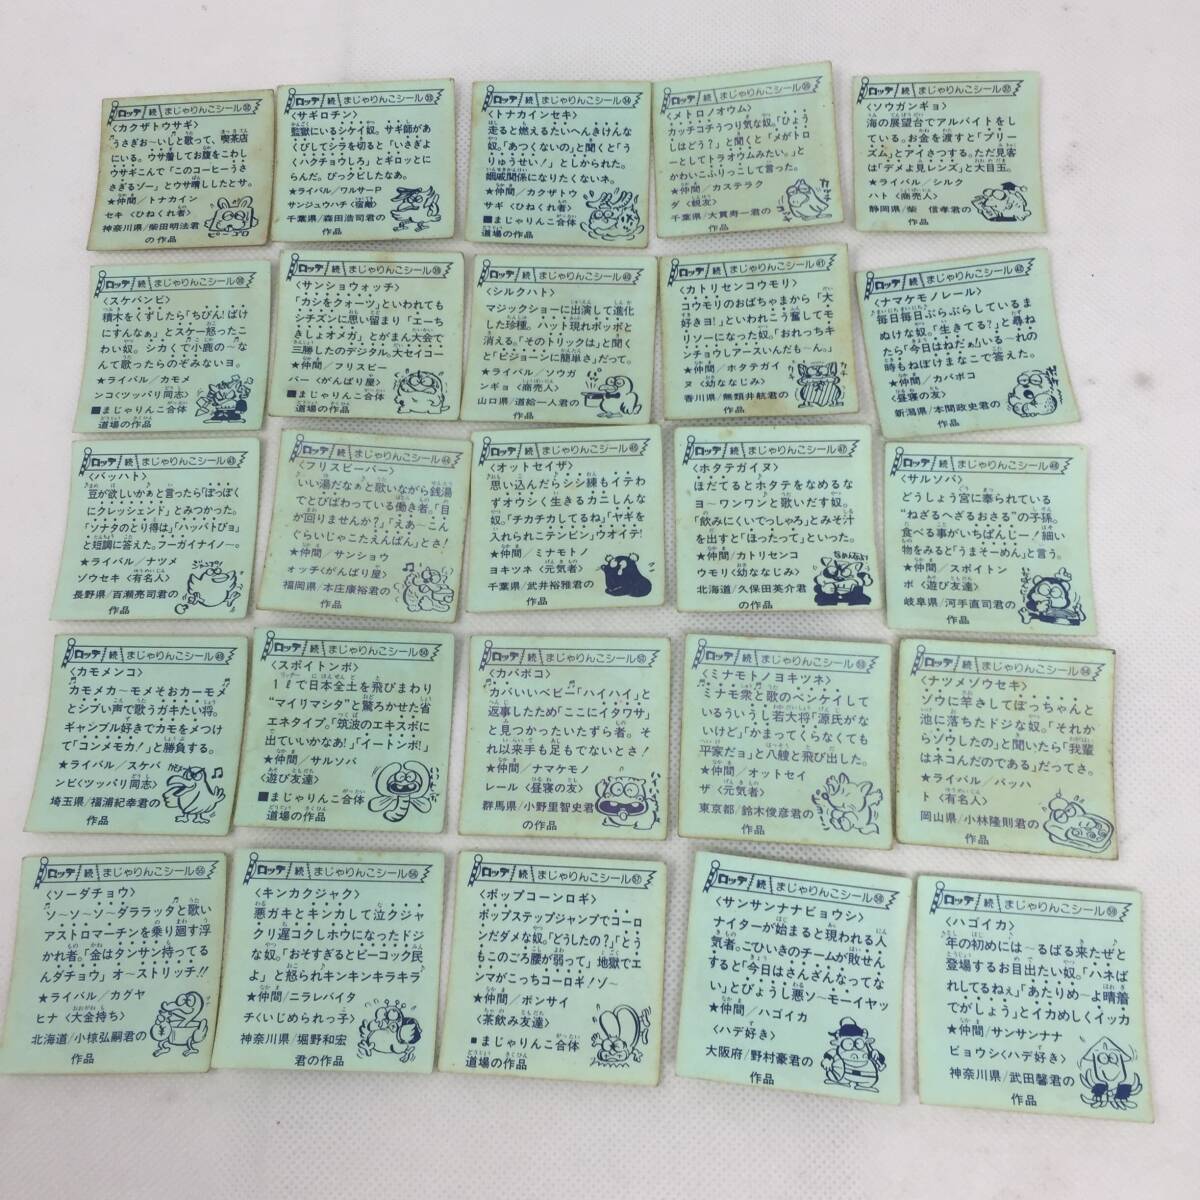 ロッテ 続 まじゃりんこシール㉜
〈カクザトウサギ〉
うさぎお〜いしと歌って、喫茶店
にいる。ウサ着してお腹をこわし
ウサギこんで「このコーヒーうさ
さぎるゾー」とウサ晴ししたとサ。
★仲間/トナカイン
セキ〈ひねくれ者〉
神奈川県/柴田明法君
の作品
ロッテ 続 まじゃりんこシール㉝
〈サギロチン〉
監獄にいるシケイ奴。サギ師があ
くびしてシラを切ると「いさぎよ
くハクチョウしろ」とギロッとに
らんだ。ぴっクビしたなぁ。
★ライバル/ワルサーP
サンジュウハチ〈宿敵〉
千葉県/森田浩司君の
作品
ロッテ 続 まじゃりんこシール㉞
〈トナカインセキ〉
走ると燃えるたいへんきけんな
奴。「あつくないの」と聞くと「う
りゅうせい!」としかられた。
姻戚関係になりたくないネ。
★仲間/カクザトウ
サギ〈ひねくれ者〉
■まじゃりんこ合体
道場の作品
ロッテ 続 まじゃりんこシール㉟
〈メトロノオウム〉
カッチコチうつり気な奴。「ひょう
しはどう?」と聞くと「メがトロ
ーとしてトラオウムみたい。」と
かわいこふりっこして言った。
★仲間/カステラク
ダ〈親友〉
千葉県/大貫寿一君の
作品
ロッテ 続 まじゃりんこシール㊲
〈ソウガンギョ〉
海の展望台でアルバイトをし
ている。お金を渡すと「プリー
ズム」とアイさつする。ただ見客
は「デメよ見レンズ」と大目玉。
★ライバル/シルク
ハト〈商売人〉
静岡県/柴 信孝君の
作品
ロッテ 続 まじゃりんこシール㊳
〈スケバンビ〉
積木をくずしたら「ちびん!ばけ
にすんなぁ」とスケー怒ったこ
わい奴。シカくて小鹿の〜な
んて歌ったらのぞみないヨ。
★ライバル/カモメ
ンコ〈ツッパリ同志〉
■まじゃりんこ合体
道場の作品
ロッテ 続 まじゃりんこシール㊴
〈サンショウォッチ〉
「カシをクォーツ」といわれても
シチズンに思い留まり「エーちt
きしょオメガ」とがまん大会で
三勝したのデジタル。大セイコー
★仲間/フリスピー
バー〈がんばり屋〉
■まじゃりんこ合体
道場の作品
ロッテ 続 まじゃりんこシール㊵
〈シルクハト〉
マジックショーに出演して進化
した珍種。ハット現れポッポと
消える。「そのトリックは」と聞く
と「ピジョーンに簡単さ」だって。
★ライバル/ソウガ
ンギョ〈商売人〉
山口県/道給一人君の
作品
ロッテ 続 まじゃりんこシール㊶
〈カトリセンコウモリ〉
コウモリのおばちゃまから「大
好きヨ!」といわれこう奮してモ
リソーになった奴。「おれっちキ
ンチョウしアースいんだも〜ん。」
★仲間/ホタテガイ
ヌ〈幼ななじみ〉
香川県/無類井航君の
作品
ロッテ 続 まじゃりんこシール㊷
〈ナマケモノレール〉
毎日毎日ぶらぶらしているま
ぬけな奴。「生きてる?」と尋ね
たら「今日はねだぁ」いる〜れの
時もねぼけまなこで答えた。
★仲間/カバボコ
〈昼寝の友〉
新潟県/本間政史君の
作品
ロッテ 続 まじゃりんこシール㊸
〈バッハト〉
豆が欲しいかぁと言ったら「ぽっぽく
にクレッシェンド」とみつかった。
「ソナタのとり得は」「ハッバトぴョ」
と短調に答えた。フーガイナイノ〜。
★ライバル/ナツメ
ゾウセキ〈有名人〉
長野県/百瀬亮司君の
作品
ロッテ 続 まじゃりんこシール㊹
〈フリスビーバー〉
いい湯だなぁと歌いながら銭湯
でとびばわっている働き者。「目
が回りませんか?」「えあ〜こん
ぐらいじゃこたえんばん」とさ!
★仲間/サンショウ
ォッチ〈がんばり屋〉
福岡県/本庄康裕君の
作品
ロッテ 続 まじゃりんこシール㊺
〈オットセイザ〉
思い込んだらシシ練もイテわ
ずオウシく生きるカニしんな
奴。「チカチカしてるね」「ヤギを
入れられこテンビン」ウオイテ!
★仲間/ミナモトノ
ヨキツネ〈元気者〉
千葉県/武井裕雅君の
作品
ロッテ 続 まじゃりんこシール㊼
〈ホタテガイヌ〉
ほだてるとホタテをなめるな
ヨ〜ワンワンと歌いだす奴。
「飲みにくいでっしゃろ」とみそ汁
を出すと「ほったって」といった。
★仲間/カトリセンコ
ウモリ〈幼ななじみ〉
北海道/久保田英介君
の作品
ロッテ 続 まじゃりんこシール㊽
〈サルソバ〉
どうしょう宮に奉られている
“ねざるへざるおさる”の子孫。
食べる事がいちばんじー!細い
物をみると「うまそーめん」と言う。
★仲間/スポイトン
ボ〈遊び友達〉
岐阜県/河手直司君の
作品
ロッテ 続 まじゃりんこシール㊾
〈カモメンコ〉
カモメカ〜モメそおカーモメ
とシブい声で歌うガキたい将。
ギャンブル好きでカモをメつけ
て「コンメモカ!」と勝負する。
★ライバル/スケバ
ンビ〈ツッパリ同志〉
埼玉県/福浦紀幸君の
作品
ロッテ 続 まじゃりんこシール㊿
〈スポイトンボ〉
1ℓで日本全土を飛びまわり
“マイリマシタ”と驚ろかせた省
エネタイプ。「筑波のエキスポに
出ていいかなあ!」「イートンボ!」
★仲間/サルソバ
〈遊び友達〉
■まじゃりんこ合体
道場の作品
ロッテ 続 まじゃりんこシール
〈カバボコ〉
カバいいベビー「ハイハイ」と
返事したため「ここにイタワサ」
と見つかったいたずら者。そ
れ以来手も足もでないとさ!
★仲間/ナマケモノ
レール〈昼寝の友〉
群馬県/小野里智史君
の作品
ロッテ 続 まじゃりんこシール
〈ミナモトノヨキツネ〉
ミナモ衆と歌のベンケイして
いるういうし若大将「源氏がな
いけど」「かまってくらなくても
平家だョ」と八艘と飛び出した。
★仲間/オットセイ
ザ〈元気者〉
東京都/鈴木俊彦君の
作品
ロッテ 続 まじゃりんこシール
〈ナツメゾウセキ〉
ゾウに竿さしてぼっちゃんと
池に落ちたドジな奴。「それか
らゾウしたの」と聞いたら「我輩
はネコんだのである」だってさ。
★ライバル/バッハ
ト〈有名人〉
岡山県/小林隆則君の
作品
ロッテ 続 まじゃりんこシール
〈ソーダチョウ〉
ソ〜ソ〜ソ〜ダララッタと歌い
アストロマーチンを乗り廻す浮
かれ者。「金はタンサン持ってる
んダチョウ」オ〜ストリッチ!!
★ライバル/カグヤ
ヒナ〈大金持ち〉
北海道/小椋弘嗣君の
作品
ロッテ 続 まじゃりんこシール
〈キンカクジャク〉
悪ガキとキンカして泣クジャ
クリ遅コクしホウになったドジ
な奴。「おそすぎるとピーコック民
よ」と怒られキンキンキラキラ
★仲間/ニラレバイタ
チ〈いじめられっ子〉
神奈川県/堀野和宏
君の作品
ロッテ 続 まじゃりんこシール
〈ポップコーンロギ〉
ポップステップジャンプでコーロ
ンだダメな奴。「どうしたの?」「とう
もこのごろ腰が弱って」地獄でエ
ンマがこっちコーロギ!ゾ〜
★仲間/ボンサイ
〈茶飲み友達〉
■まじゃりんこ合体
道場の作品
ロッテ 続 まじゃりんこシール
〈サンサンナナビョウシ〉
ナイターが始まると現われる人
気者。ごひいきのチームが敗せん
すると「今日はさんざんなってな
い」とびょうし悪ソ〜モーイヤッ
★仲間/ハゴイカ
〈ハデ好き〉
大阪府/野村豪君の
作品
ロッテ 続 まじゃりんこシール
〈ハゴイカ〉
年の初めには〜るばる来たぜと
登場するお目出たい奴。「ハネば
れしてるねぇ」「あたりめ〜よ晴着
でがしょう」とイカめしくイッカ
★仲間/サンサンナナ
ビョウシ〈ハデ好き〉
神奈川県/武田馨君の
作品